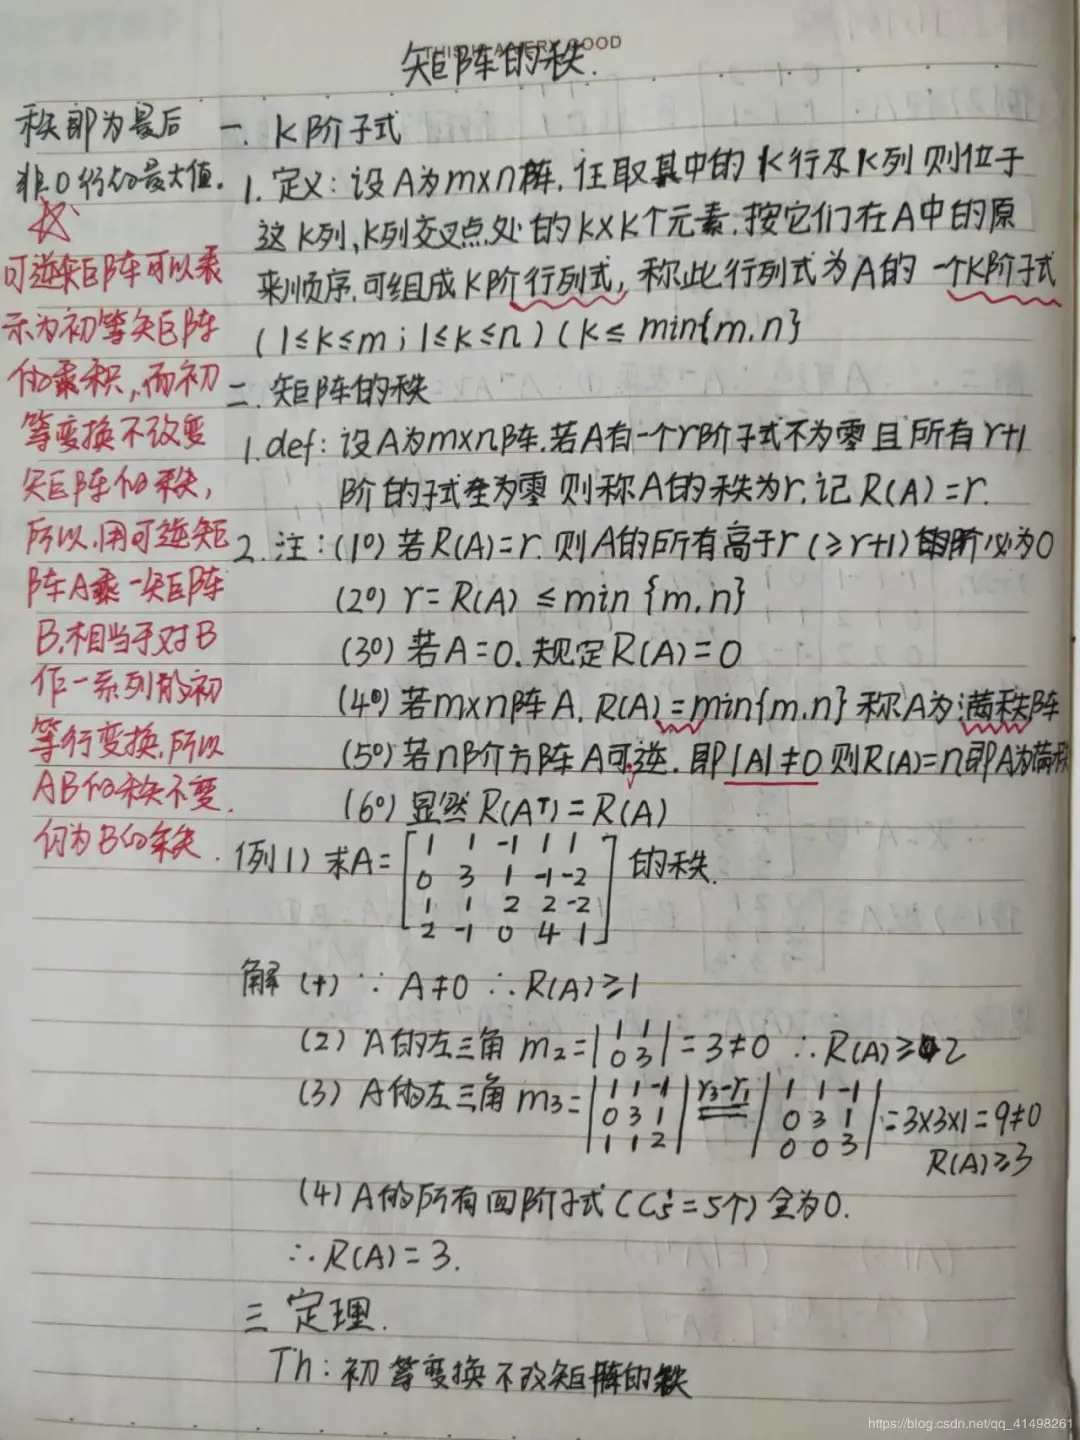 THIS IS A VERY GOOD
矩阵的秩.
秩即为最后
非0行的最大值.
可逆矩阵可以表
示为初等矩阵
的乘积,而初
等变换不改变
矩阵的秩,
所以,用可逆矩
阵A乘一矩阵
B,相当于对B
作一系列的初
等行变换,所以
AB的秩不变.
仍为B的秩.
一. K阶子式
1. 定义:设A为m×n阵.任取其中的K行及K列则位于
这K列,K列交叉点处的K×K个元素.按它们在A中的原
来顺序.可组成K阶行列式,称此行列式为A的一个K阶子式
(1≤k≤m;1≤k≤n)(k≤min{m,n}
二.矩阵的秩
1.def:设A为m×n阵.若A有一个r阶子式不为零且所有r+1
阶的子式全为零则称A的秩为r.记R(A)=r.
2.注:(1º)若R(A)=r.则A的所有高于r(≥r+1)的阶必为0
(2º) r=R(A)≤min{m,n}
(3º)若A=0.规定R(A)=0
(4º)若m×n阵A.R(A)=min{m,n}称A为满秩阵
(5º)若n阶方阵A可逆.即|A|≠0则R(A)=n即A为满秩
(6º)显然R(Aᵀ)=R(A)
例1)求A=[1 1 -1 1 1
0 3 1 -1 -2
1 1 2 2 -2
2 -1 0 4 1]的秩.
解(1)∵A≠0∴R(A)≥1
(2)A的左三角m₂=|1 1
0 3|=3≠0∴R(A)≥2
(3)A的左三角m₃=|1 1 -1
0 3 1
1 1 2| r₃-r₁ |1 1 -1
0 3 1
0 0 3|=3×3×1=9≠0
R(A)≥3
(4)A的所有四阶子式(C₅=5个)全为0.
∴R(A)=3.
三 定理.
Th:初等变换不改矩阵的秩
https://blog.csdn.net/qq_41498261